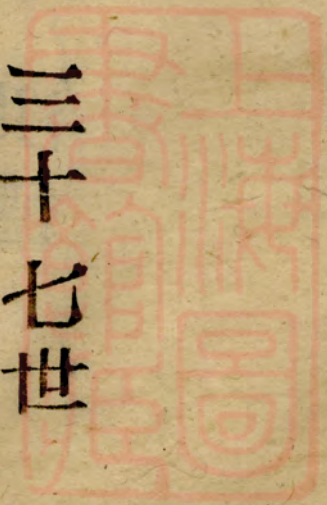 三十七世
上海圖
書館藏